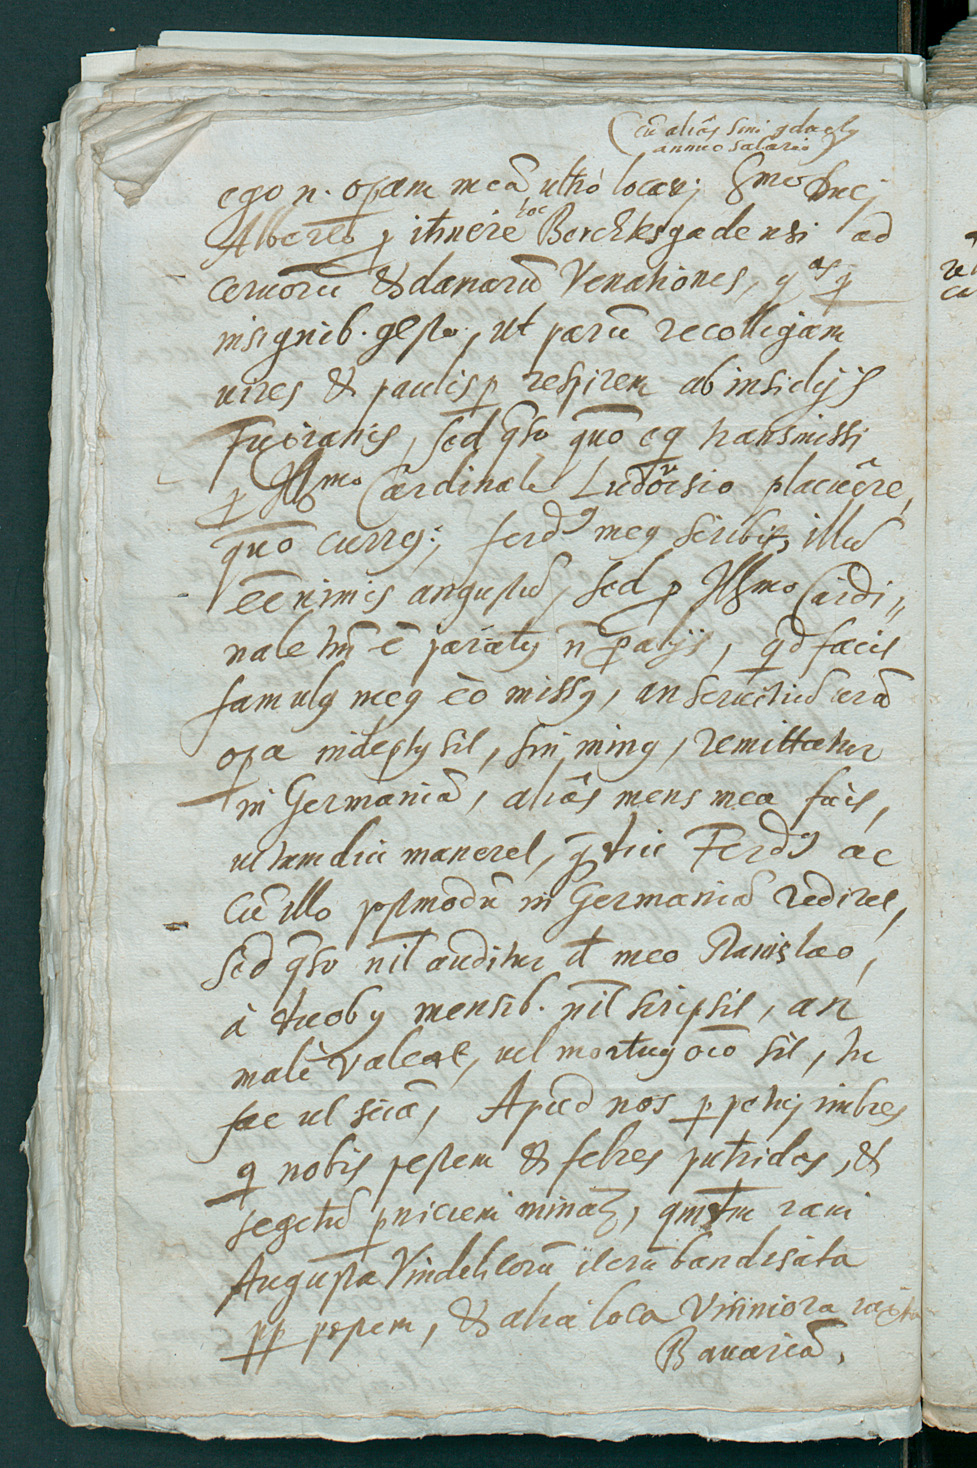 (cũ aliàs sim gdaģly
annuo salario)
ego n. opam meã ultrò locavj Smo Ducj
Alberto p itinere hoc Berchtesgadensi ad
cervorũ & damarũ Venationes, qas p
insignib. gesto, ut parũ recolligam
vires & paulisp respirem ab insidijs
, sed qso quo eq transmissi
p Illmo Cardinale Ludovisio placuêre,
quo currũ; ferdg meg scribit, illud
ee nimis angustũ, sed p Illmo Cardi„
nale tm̃ ẽ paratg n p alijs, qd facit
famulg meg eò missg, an servitiũ vrã
opa indeptg sit, sin ming, remittatur
in Germaniã, aliâs mens mea fuit,
ut tamdiu maneret, q diu Ferdg ac
cũ illo postmodũ in Germaniã rediret,
sed qso nil auditur d meo Stanislao,
à duobg mensib. nil scripsit, an
malè valeat, vel mortug oio sit, tu
fac ut sciã, Apud nos p petuj imbres
q nobis pestem & febres putridas, &
segetũ pniciem minat,
Augusta Vindelicorũ iterũ bandisata
pp pestem, & alia loca viciniora
Bavariã.